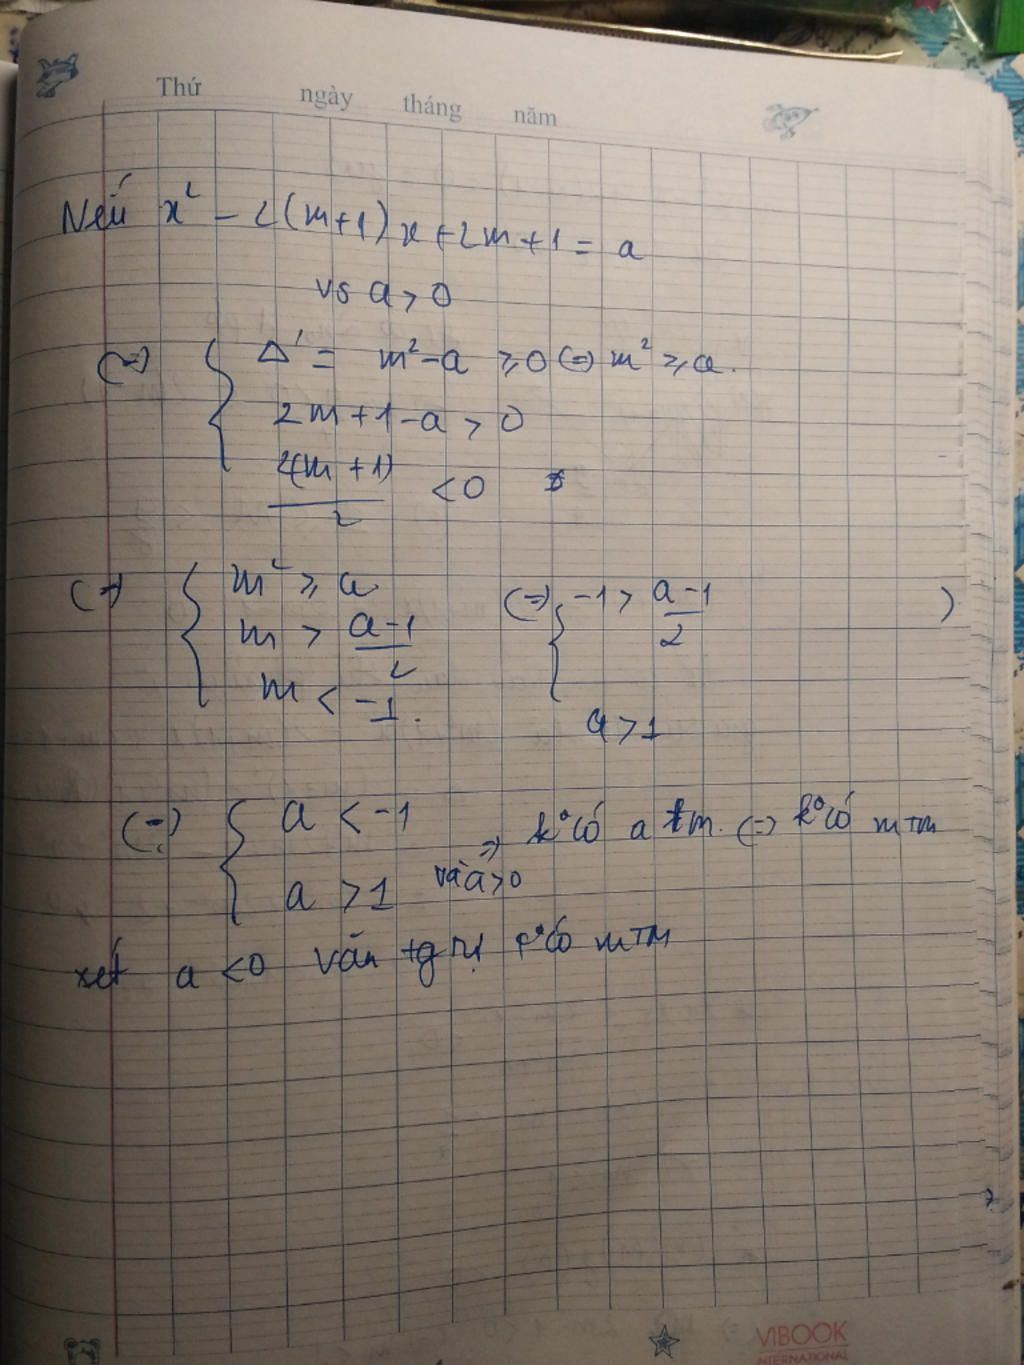 Thứ ngày tháng năm
Nếu x² - 2(m+1)x + 2m + 1 = a
vs a > 0
(=) { Δ' = m² - a ⩾ 0 (=) m² ⩾ a.
2m + 1 - a > 0
2(m+1)/2 < 0
(=) { m² ⩾ a (=) { -1 > (a-1)/2 )
m > (a-1)/2
m < -1.
a > 1
(=) { a < -1 => k° có a tm. (=) k° có m TM
a > 1 và a > 0
xét a < 0 vẫn tg tự k° có m TM
VIBOOK
INTERNATIONAL